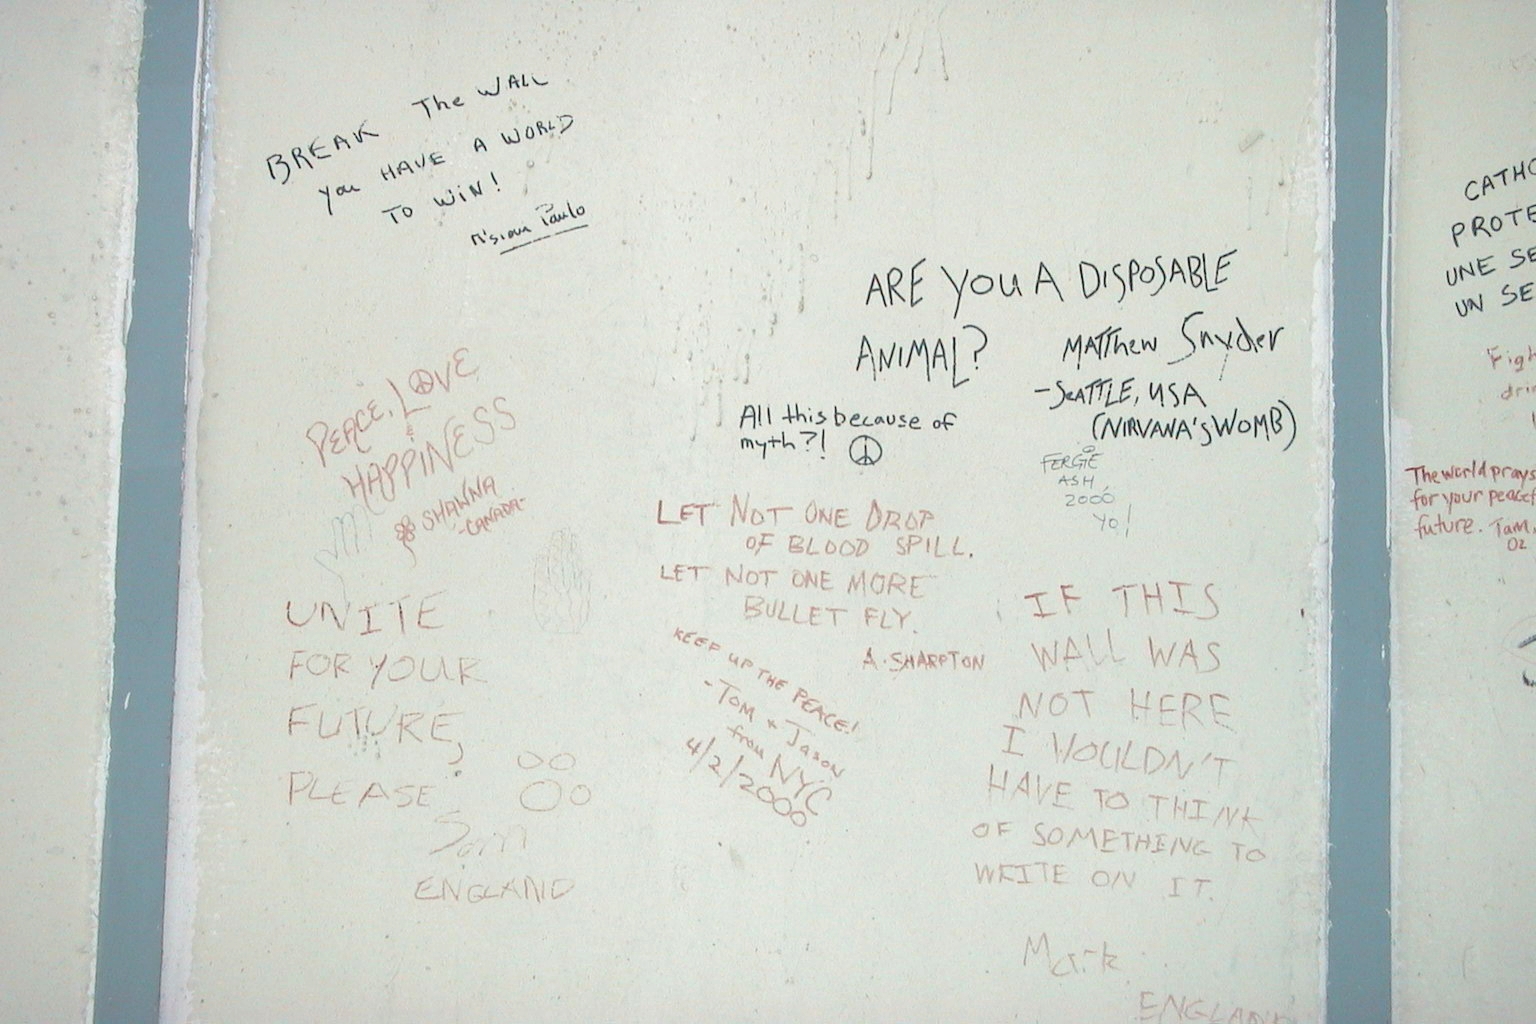 BREAK The WALL
you HAVE A WORLD
TO WIN!
Paulo
ARE YOU A DISPOSABLE
ANIMAL?
MATThew Snyder
-SeATTLE, USA
(NIRVANA'S WOMB)
All this because of
myth?!
FERGIE
ASH
2000
YO!
PEACE, LOVE
&
HAPPINESS
SHAWNA
-CANADA-
LET NOT ONE DROP
OF BLOOD SPILL.
LET NOT ONE MORE
BULLET FLY.
A. SHARPTON
KEEP UP THE PEACE!
-TOM + Jason
from NYC
4/2/2000
UNITE
FOR YOUR
FUTURE,
PLEASE
Sam
ENGLAND
IF THIS
WALL WAS
NOT HERE
I WOULDN'T
HAVE TO THINK
OF SOMETHING TO
WRITE ON IT.
Mark
ENGLAND
CATHO
PROTE
UNE SE
UN SE
Figh
drin
The world prays
for your peacef
future. Tam.
Oz